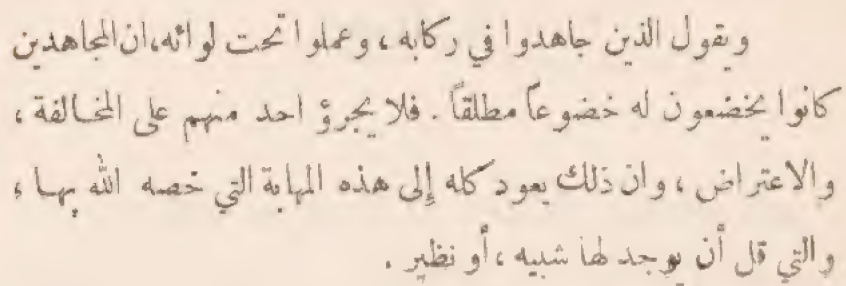 ويقول الذين جاهدوا في ركابه ، وعملوا تحت لوائه،ان المجاهدين
كانوا يخضعون له خضوعاً مطلقاً . فلا يجرؤ احد منهم على المخالفة ،
والاعتراض ، وان ذلك يعود كله إلى هذه المهابة التي خصه الله بها ،
والتي قل أن يوجد لها شبيه ، أو نظير .